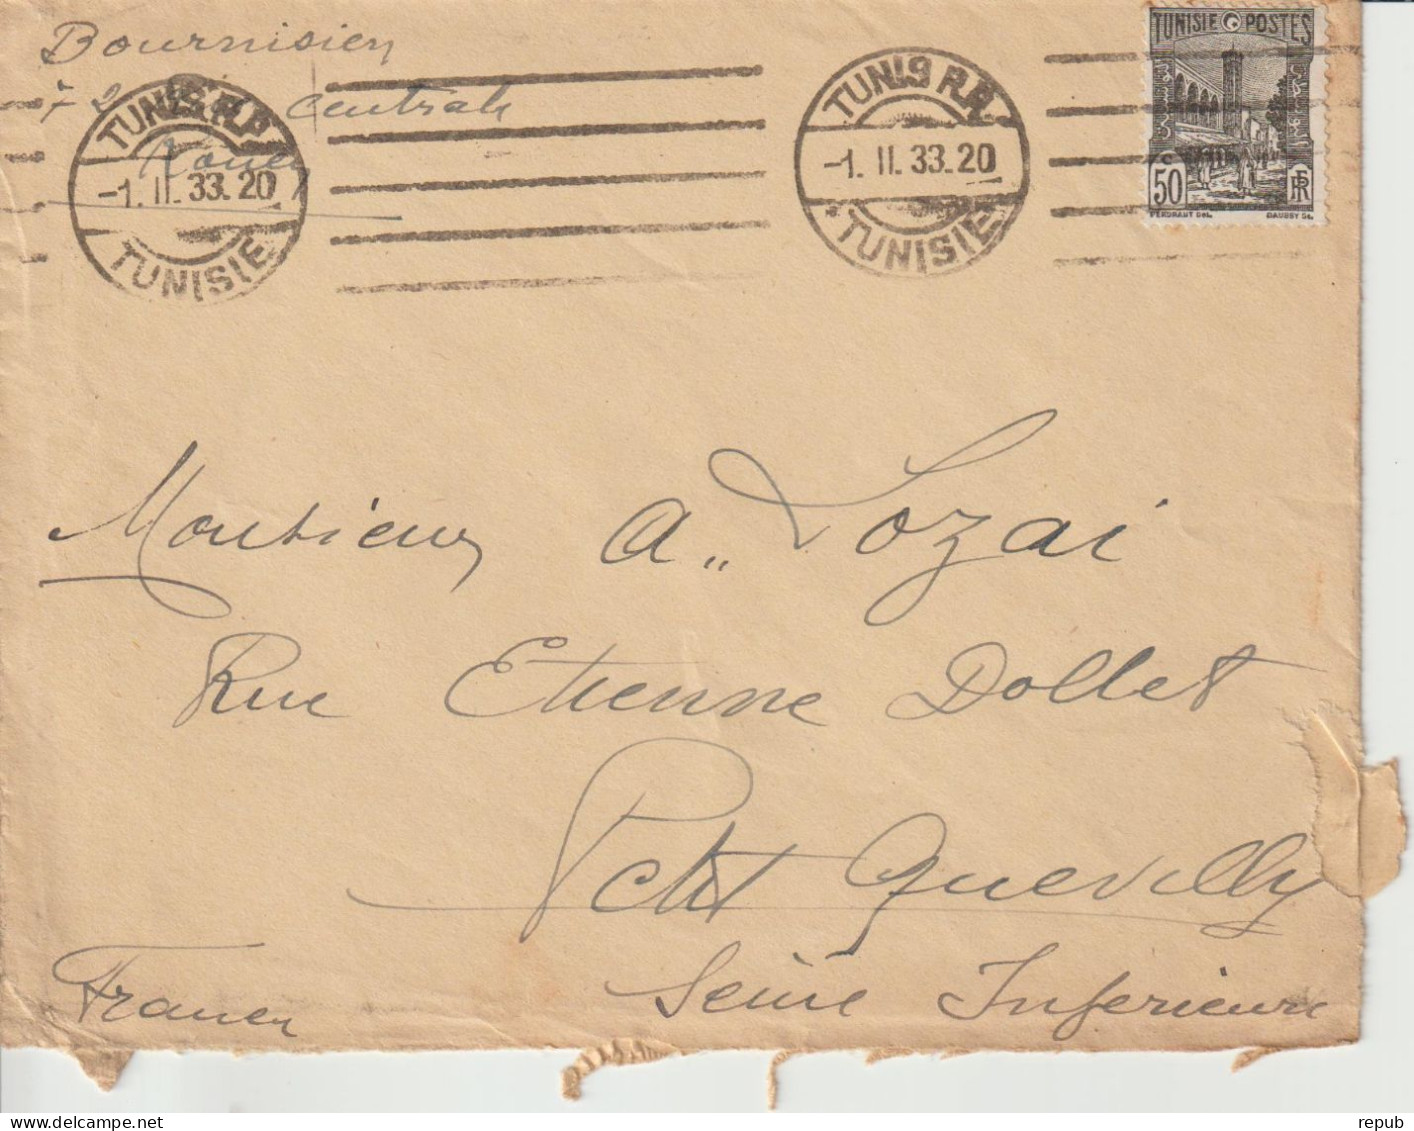 Bournisien
72 centrale
Rouen
TUNIS R.P.
-1. II. 33. 20
TUNISIE
TUNIS R.P.
-1. II. 33. 20
TUNISIE
TUNISIE POSTES
50 c RF
DAUSSY Sc.
Monsieur A. Lozai
Rue Etienne Dollet
Petit Quevilly
Seine Inferieure
France
delcampe.net
repub